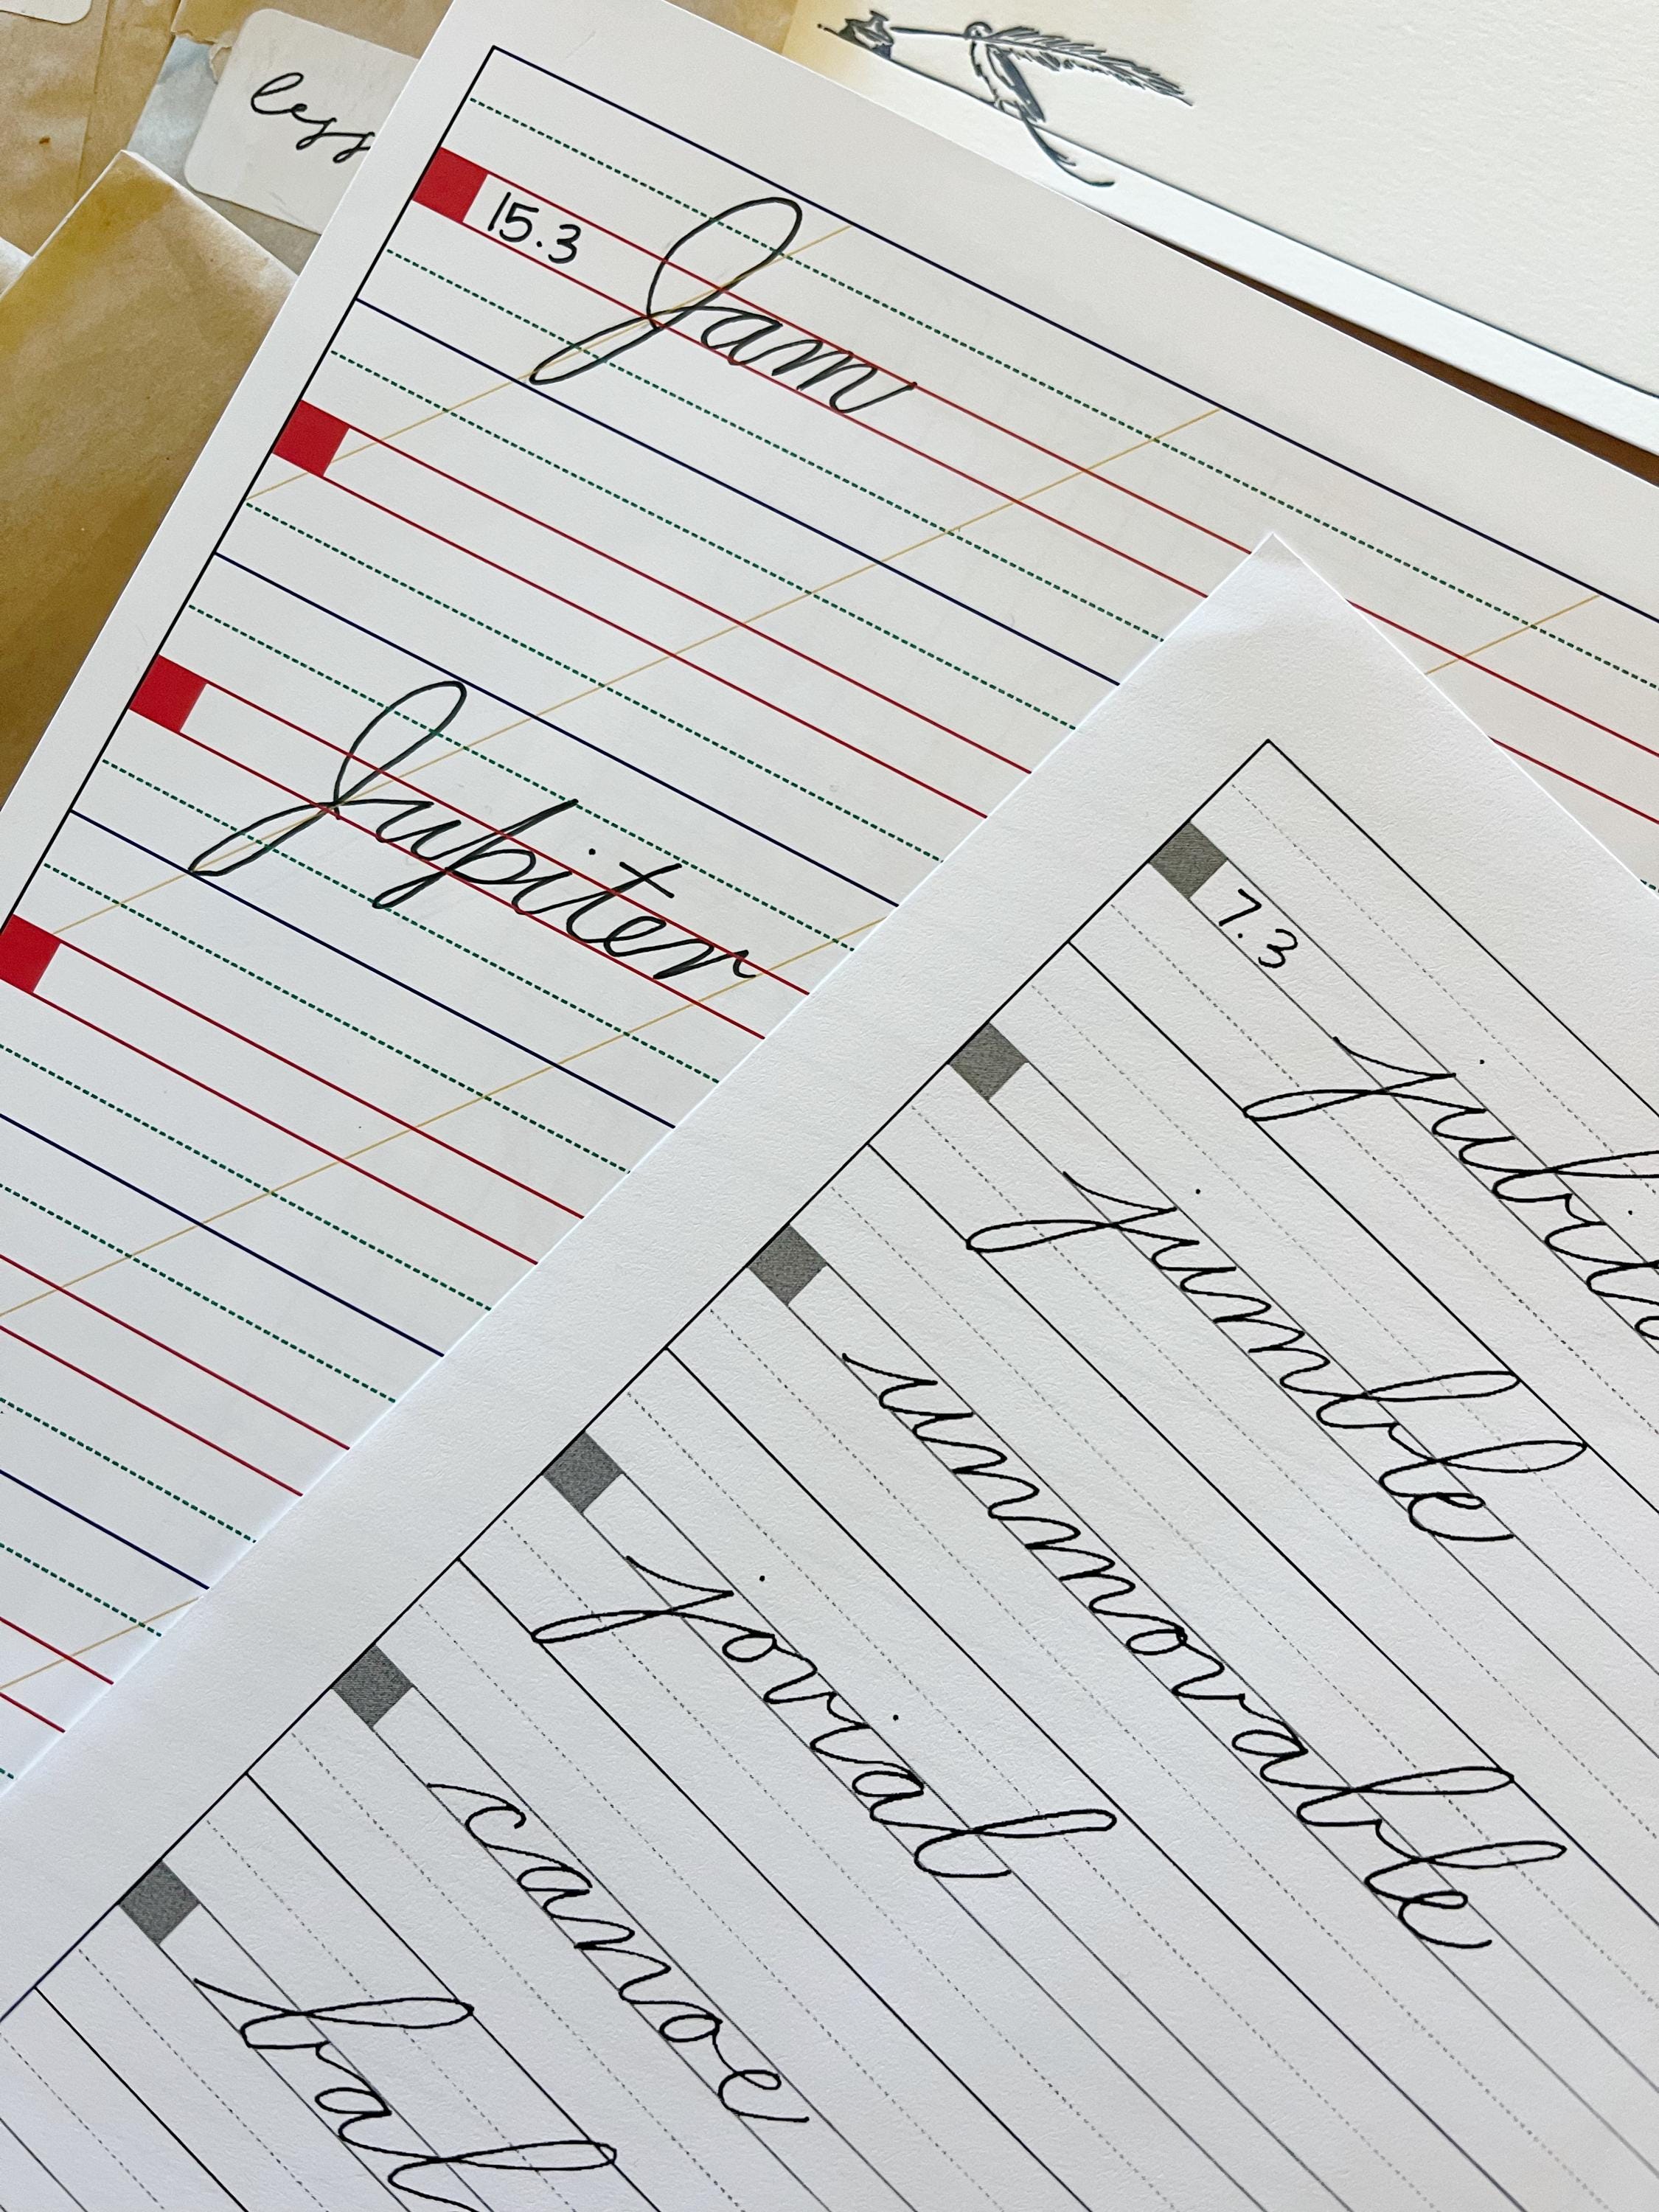 less
15.3 Jam
Jupiter
7.3
jubila
jumble
unmovable
jovial
canoe
bal